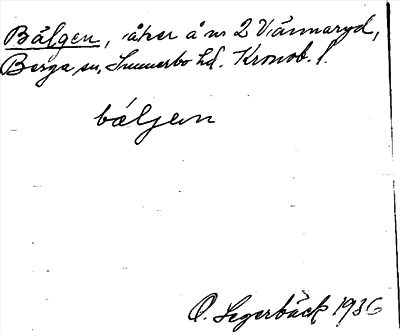 Bälgen, åker å nr 2 Vännaryd,
Berga sn, Sunnerbo hd. Kronob. l.
bäljen
O. Segerbäck 1936